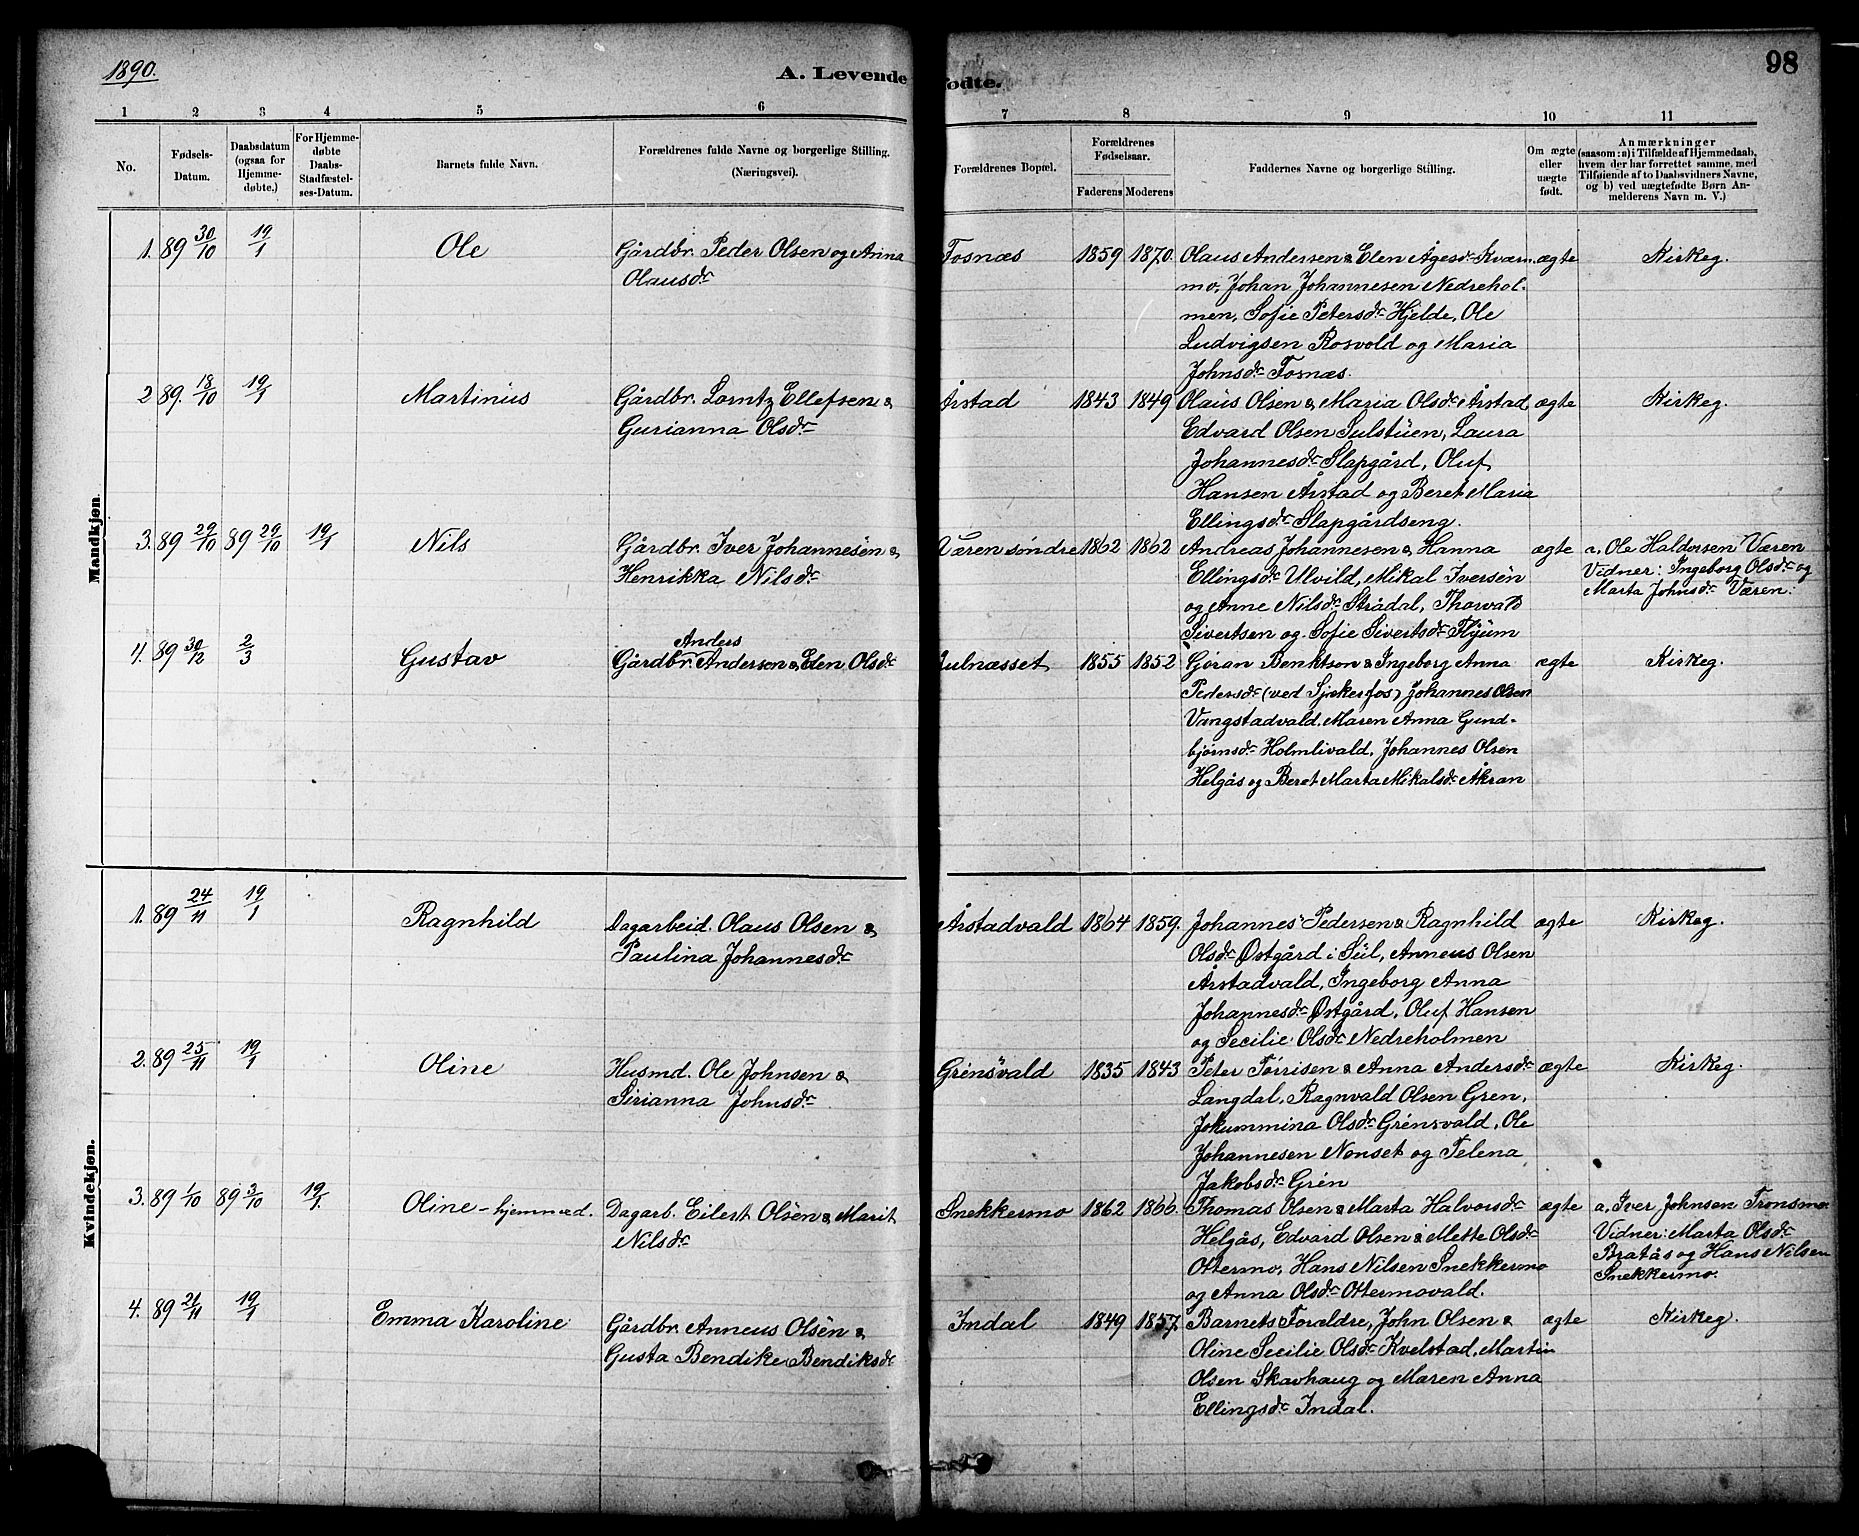 1890.
A. Levende fødte.
98
1 2 3 4 5 6 7 8 9 10 11
No.
Fødsels-
Datum.
Daabsdatum
(ogsaa for
Hjemme-
døbte.)
For Hjemme-
døbte
Daabs-
Stadfæstel-
ses-Datum.
Barnets fulde Navn.
Forældrenes fulde Navne og borgerlige Stilling.
(Næringsvei).
Forældrenes Bopæl.
Forældrenes
Fødselsaar.
Faderens Moderens
Faddernes Navne og borgerlige Stilling.
Om ægte
eller
uægte
født.
Anmærkninger
(saasom: a) i Tilfælde af Hjemmedaab,
hvem der har forrettet samme, med
Tilføiende af to Daabsvidners Navne,
og b) ved uægtefødte Børn An-
melderens Navn m. V.)
Mandkjøn.
1. 89 30/10 19/1 Ole
Gårdbr. Peder Olsen og Anna
Olausdr
Fosnæs 1859 1870.
Olaus Andersen & Elen Ågesdr Kværn-
mo, Johan Johannesen Nedrehol-
men, Sofie Petersdr Hjelde, Ole
Ludvigsen Rosvold og Maria
Johnsdr Fosnæs.
ægte Kirkeg.
2 89. 18/10 19/1 Martinus
Gårdbr. Lorntz Ellefsen &
Gurianna Olsdr
Årstad 1843 1849
Olaus Olsen & Maria Olsdr Årstad,
Edvard Olsen Sulstuen, Laura
Johannesdr Slapgård, Oluf
Hansen Årstad og Beret Maria
Ellingsdr Slapgårdseng.
ægte Kirkeg.
3. 89 29/10 89 29/10 19/1 Nils
Gårdbr. Iver Johannesen &
Henrikka Nilsdr
Væren søndre 1862 1862
Andreas Johannesen & Hanna
Ellingsdr Ulvild, Mikal Iversen
og Anne Nilsdr Strådal, Thorvald
Sivertsen og Sofie Sivertsdr Flyum
ægte
a, Ole Haldorsen Væren
Vidner: Ingeborg Olsdr og
Marta Johnsdr Væren.
4. 89 30/12 2/3 Gustav
Anders
Gårdbr. Andersen & Elen Olsdr
Julnæsset 1855 1852
Gøran Benktson & Ingeborg Anna
Pedersdr (ved Sjækerfos) Johannes Olsen
Vangstadvald, Maren Anna Gund-
bjørnsdr Holmlivald, Johannes Olsen
Helgås og Beret Marta Mikalsdr Åkran
ægte Kirkeg.
Kvindekjøn.
1. 89 24/11 19/1 Ragnhild
Dagarbeid. Olaus Olsen &
Paulina Johannesdr
Årstadvald 1864 1859.
Johannes Pedersen & Ragnhild
Olsdr Østgård i Sul, Anneus Olsen
Årstadvald, Ingeborg Anna
Johannesdr Østgård, Oluf Hansen
og Secilie Olsdr Nedreholmen
ægte Kirkeg.
2. 89 25/11 19/1 Oline
Husmd. Ole Johnsen &
Sirianna Johnsdr
Grensvald 1835 1843
Peter Tørrisen & Anna Andersdr
Langdal, Ragnvald Olsen Gren,
Jokummina Olsdr Grensvald, Ole
Johannesen Nonset og Telena
Jakobsdr Grén
ægte Kirkeg.
3. 89 1/10 89 3/10 19/1. Oline – hjemmed.
Dagarb. Eilert Olsen & Marit
Nilsdr
Snekkermo 1862 1866.
Thomas Olsen & Marta Halvorsdr
Helgås, Edvard Olsen & Mette Olsdr
Ottermo, Hans Nilsen Snekkermo
og Anna Olsdr Ottermovald.
ægte
a, Iver Johnsen Tronsmo.
Vidner: Marta Olsdr
Bratås og Hans Nilsen
Snekkermo.
4. 89 21/11 19/1 Emma Karoline
Gårdbr. Anneus Olsen &
Gusta Bendike Bendiksdr
Indal 1849 1857.
Barnets Forældre, John Olsen &
Oline Secilie Olsdr Kvelstad, Martin
Olsen Skavhaug og Maren Anna
Ellingsdr Indal.
ægte Kirkeg.